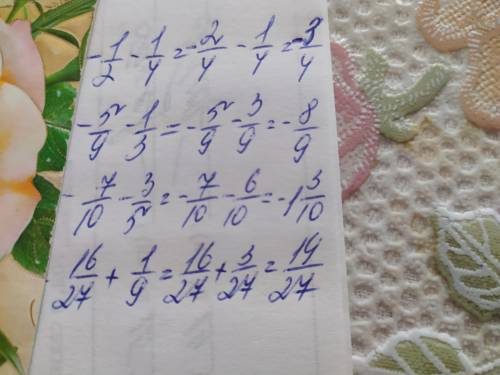 -1/2 - 1/4 = -2/4 - 1/4 = -3/4
-5/9 - 1/3 = -5/9 - 3/9 = -8/9
-7/10 - 3/5 = -7/10 - 6/10 = -1 3/10
16/27 + 1/9 = 16/27 + 3/27 = 19/27